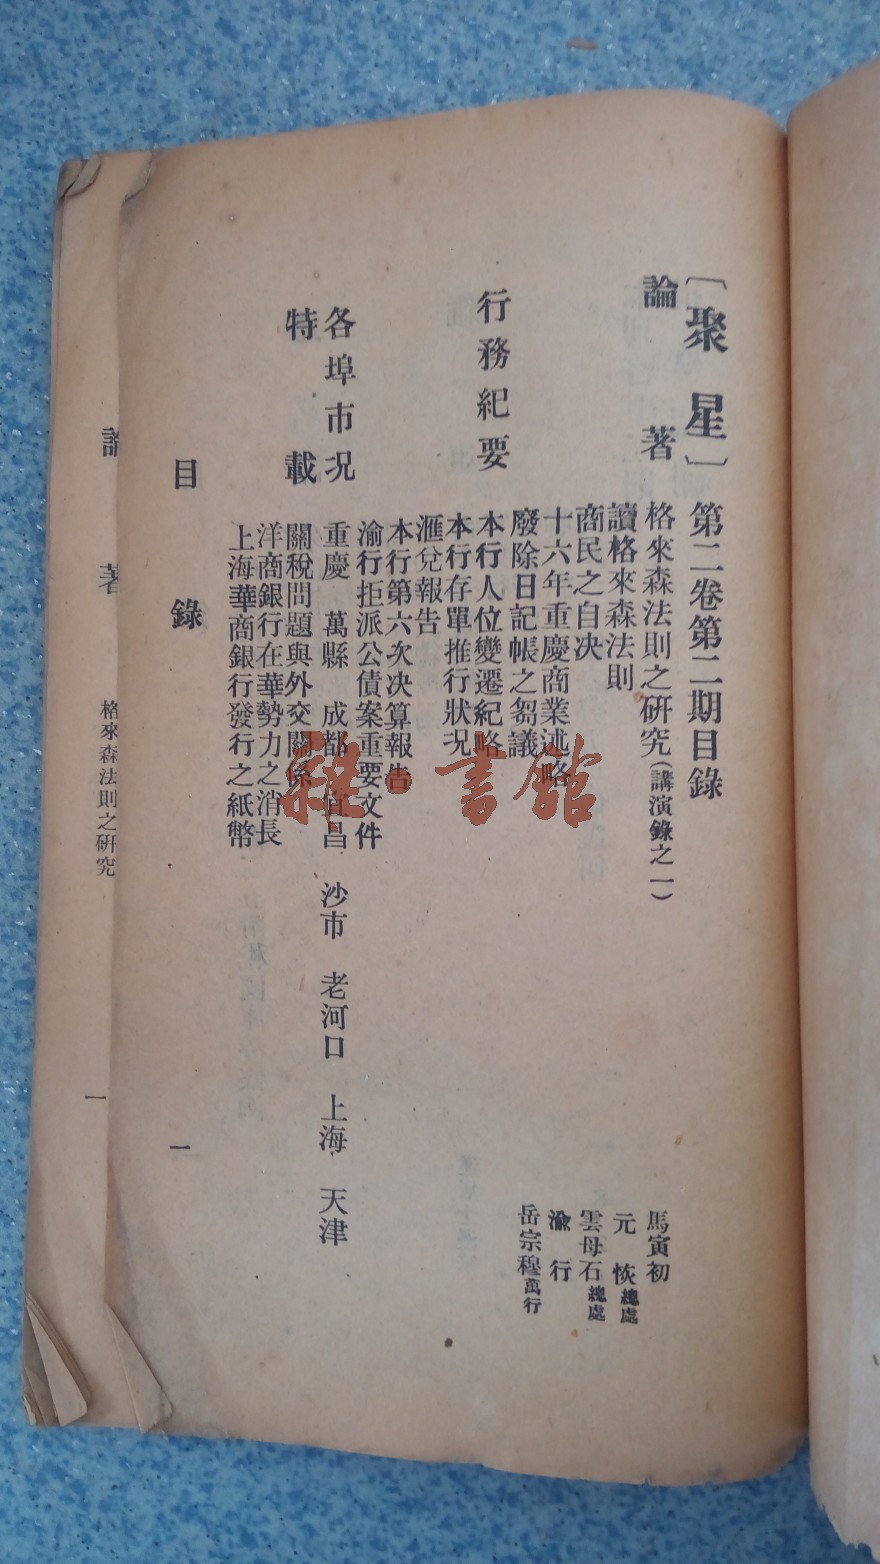 〔聚星〕第二卷第二期目錄
論著
格來森法則之硏究(講演錄之一) 馬寅初
讀格來森法則 元恢總處
商民之自决 雲母石總處
十六年重慶商業述略 渝行
廢除日記帳之芻議 岳宗穆萬行
行務紀要
本行人位變遷紀略
本行存單推行狀况
滙兌報告
本行第六次决算報告
渝行拒派公債案重要文件
各埠市况
重慶 萬縣 成都 宜昌 沙市 老河口 上海 天津
特載
關稅問題與外交關係
洋商銀行在華勢力之消長
上海華商銀行發行之紙幣
目錄 一
論著 格來森法則之硏究 一
雜·書館